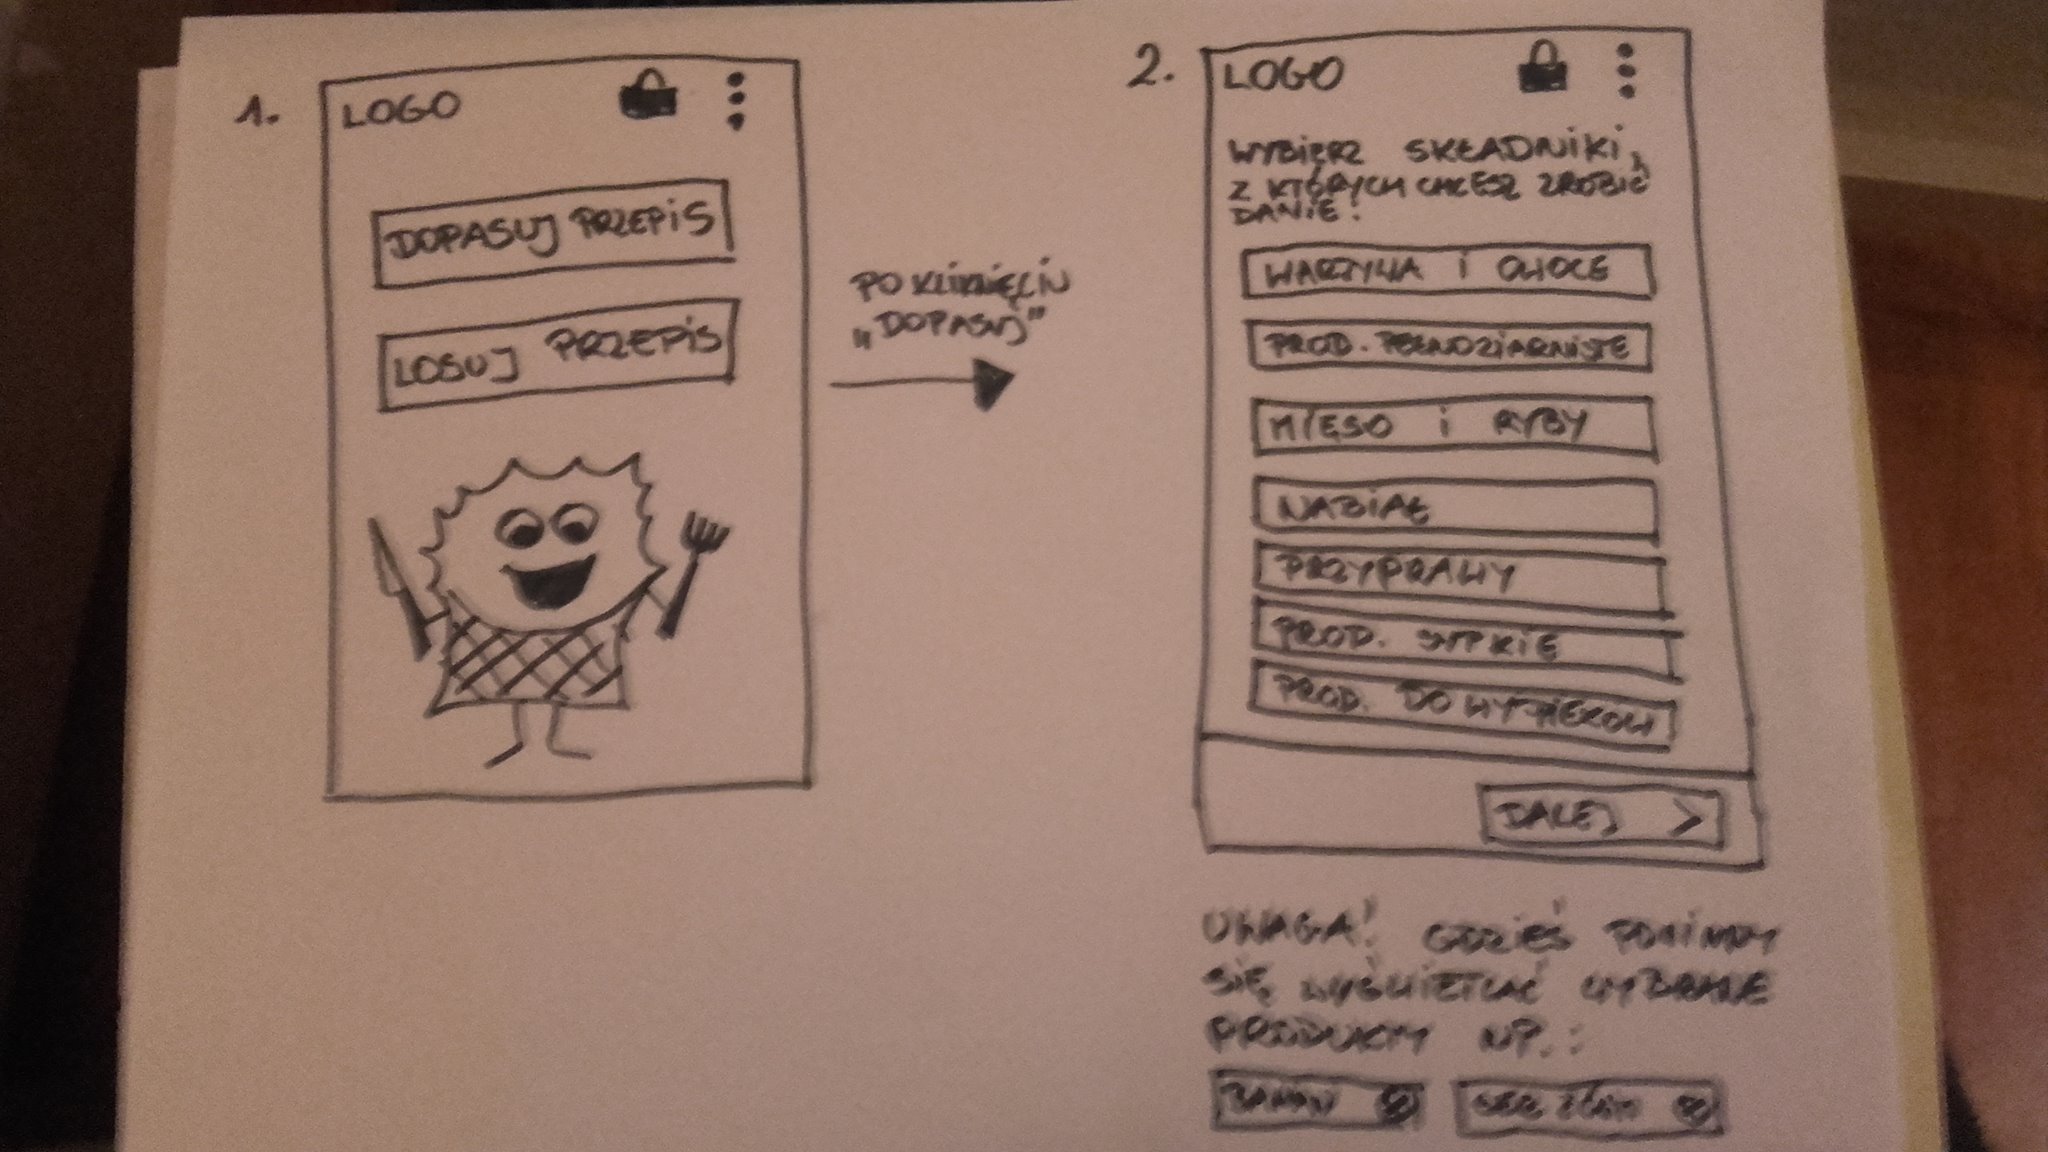 1.
LOGO
DOPASUJ PRZEPIS
LOSUJ PRZEPIS
PO KLIKNIĘCIU
„DOPASUJ"
2.
LOGO
WYBIERZ SKŁADNIKI,
Z KTÓRYCH CHCESZ ZROBIĆ
DANIE!
WARZYWA I OWOCE
PROD. PEŁNOZIARNISTE
MIĘSO I RYBY
NABIAŁ
PRZYPRAWY
PROD. SYPKIE
PROD. DO WYPIEKÓW
DALEJ >
UWAGA! GDZIEŚ POWINNY
SIĘ WYŚWIETLAĆ WYBRANE
PRODUKTY NP.:
BANAN
SER ŻÓŁTY